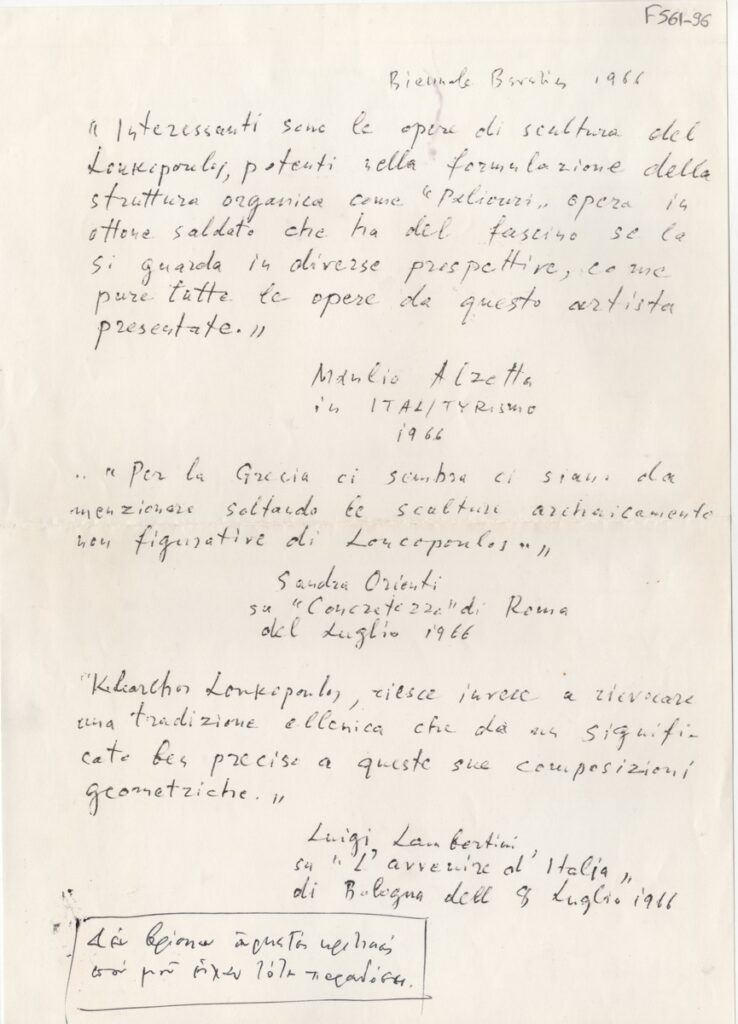 F561-96
Biennale 1966
"Interessanti sono le opere di scultura del
Loukopoulos, potenti nella formulazione della
struttura organica come "Paliouri" opera in
ottone saldato che ha del fascino se la
si guarda in diverse prospettive, come
pure tutte le opere da questo artista
presentate."
Manlio Alzetta
in ITALITYRISMO
1966
.. "Per la Grecia ci sembra ci siano da
menzionare soltando le sculture archaicamente
non figurative di Loucopoulos"
Sandra Orienti
su "Concretezza" di Roma
del Luglio 1966
"Klearchos Loukopoulos, riesce invece a rievocare
una tradizione ellenica che dà un signifi-
cato ben preciso a queste sue composizioni
geometriche."
Luigi Lambertini,
su "L'avvenire d'Italia"
di Bologna dell 8 Luglio 1966
Δὲν ἀρκετὲς κριτικὲς
ποὺ μοῦ εἶχαν τότε